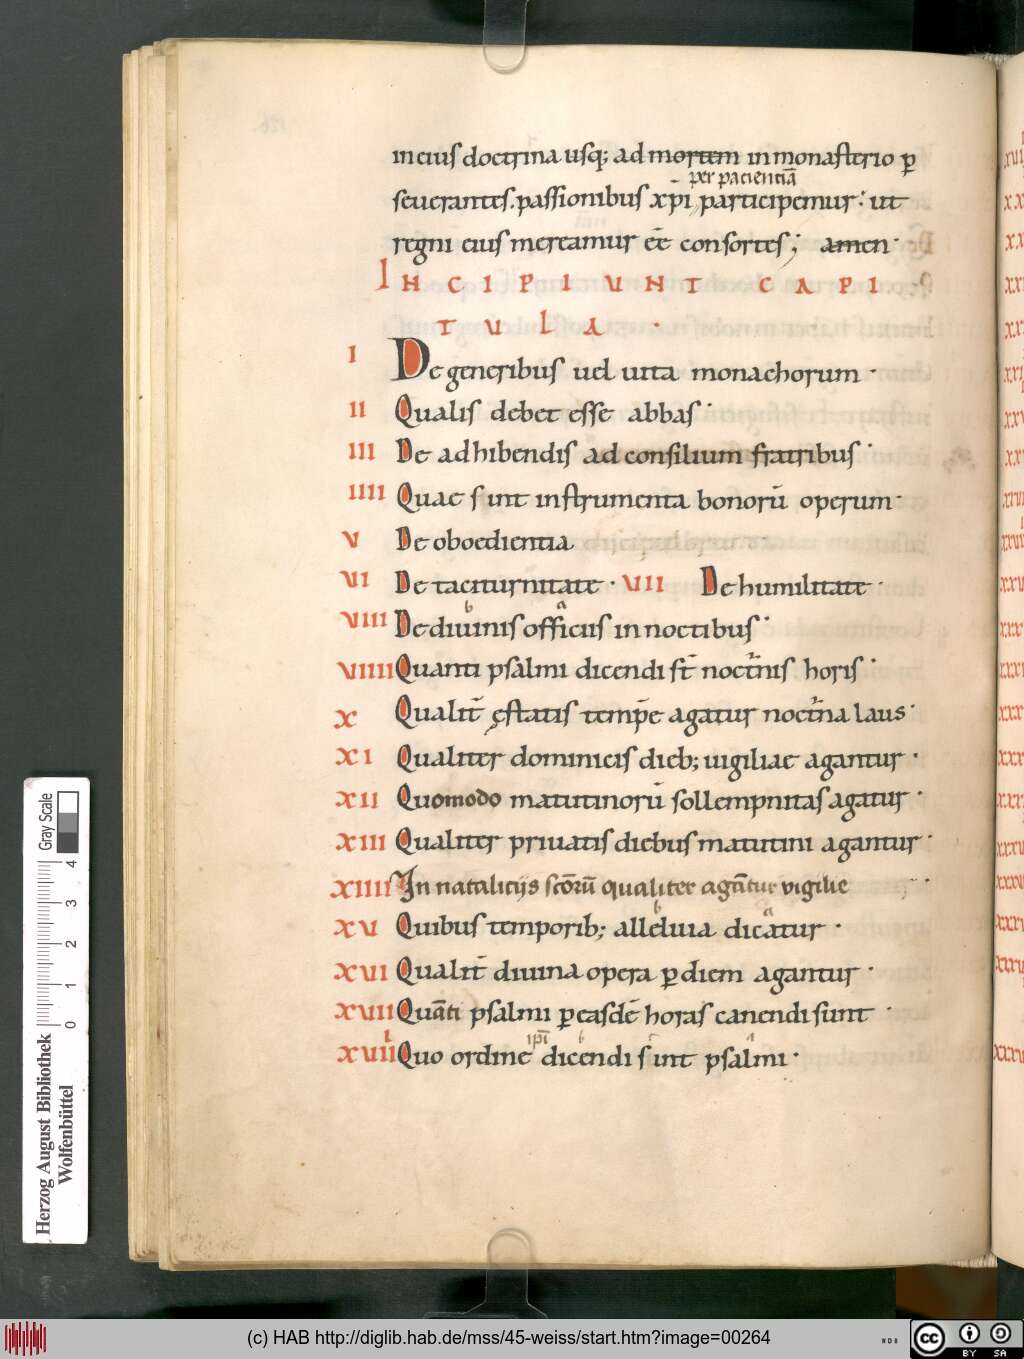 in eius doctrina usq; ad mortem in monasterio p̱
per pacientiā
seuerantes. passionibus xp̄i participemur: ut
regni eius mereamur eē consortes; amen·
INCIPIUNT CAPI
TULA·
I De generibus uel uita monachorum·
II Qualis debet esse abbas·
III De adhibendis ad consilium fratribus·
IIII Quae sint instrumenta bonorū operum·
V De oboedientia
VI De taciturnitate· VII De humilitate·
VIII De diuinis officiis in noctibus·
VIIII Quanti psalmi dicendi st̄ noct̄nis horis·
X Qualit̄ ęstatis temp̄e agatur noct̄na laus·
XI Qualiter dominicis dieb; uigiliae agantur·
XII Quomodo matutinorū sollempnitas agatur·
XIII Qualiter priuatis diebus matutini agantur·
XIIII In natalicijs scōrū qualiter agātur vigilie·
XV Quibus temporib; alleluia dicatur·
XVI Qualit̄ diuina opera p̱ diem agantur·
XVII Quāti psalmi p̱ easdē horas canendi sunt·
ipī
XVIII Quo ordine dicendi sint psalmi·
Herzog August Bibliothek
Wolfenbüttel
0 1 2 3 4
Gray Scale
(c) HAB http://diglib.hab.de/mss/45-weiss/start.htm?image=00264
cc BY SA